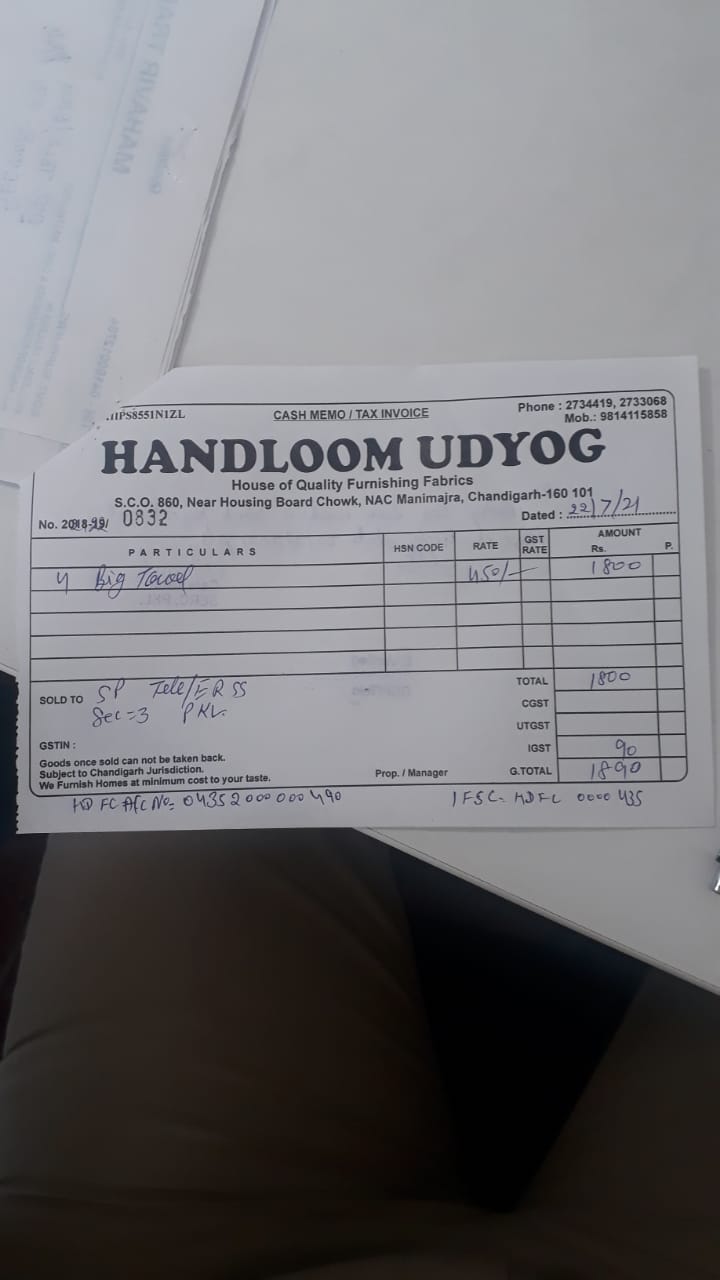 MAHAVIR TRA
.IIPS8551N1ZL
CASH MEMO / TAX INVOICE
Phone : 2734419, 2733068
Mob.: 9814115858
HANDLOOM UDYOG
House of Quality Furnishing Fabrics
S.C.O. 860, Near Housing Board Chowk, NAC Manimajra, Chandigarh-160 101
No. 0832
Dated : 22/7/21
PARTICULARS HSN CODE RATE GST RATE AMOUNT Rs. P.
4 Big Towel 450/- 1800
TOTAL 1800
SOLD TO SP Tele/ERSS
Sec-3 PKL.
CGST
UTGST
GSTIN :
IGST 90
Goods once sold can not be taken back.
Subject to Chandigarh Jurisdiction.
We Furnish Homes at minimum cost to your taste.
Prop. / Manager
G.TOTAL 1890
HDFC A/c No= 04352000000490 IFSC- HDFC 0000435